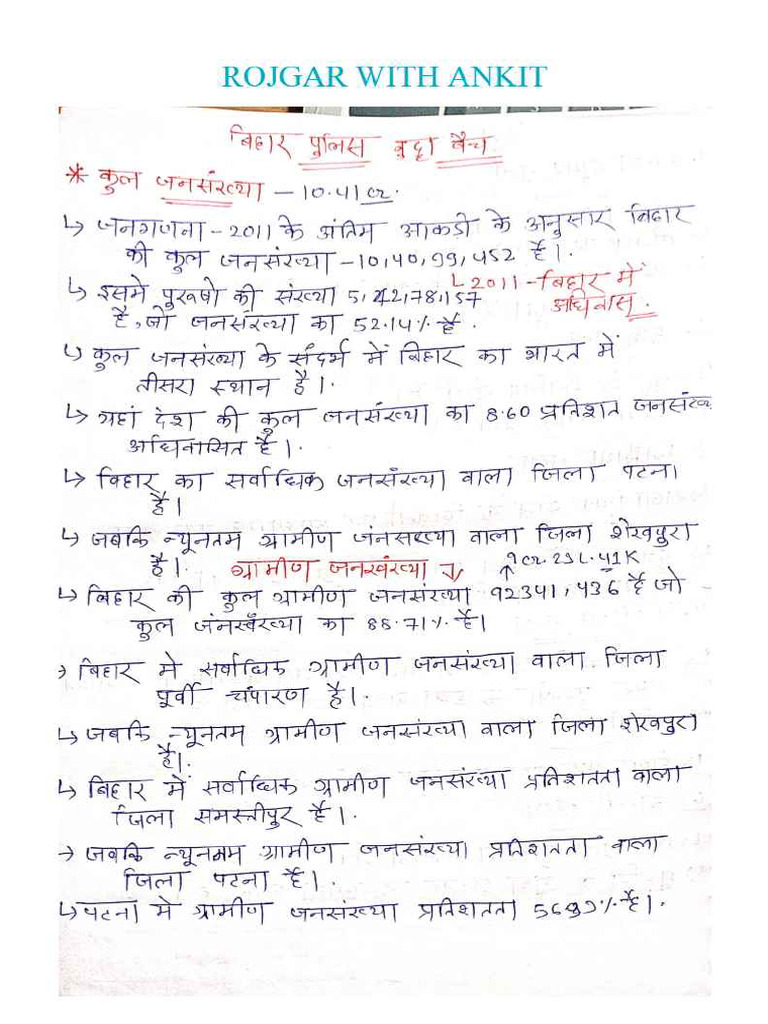 ROJGAR WITH ANKIT
बिहार पुलिस बुद्दा बैच
* कुल जनसंख्या – 10.41 cr.
↳ जनगणना – 2011 के अंतिम आकडो के अनुसार बिहार
की कुल जनसंख्या – 10,40,99,452 है।.
↳ 2011 – बिहार में
अधिवास.
↳ इसमे पुरूषो की संख्या 5,42,78,157
है, जो जनसंख्या का 52.14% है.
↳ कुल जनसंख्या के संदर्भ में बिहार का भारत में
तीसरा स्थान है।.
↳ यहां देश की कुल जनसंख्या का 8.60 प्रतिशत जनसंख्य
अधिवासित है।.
↳ बिहार का सर्वाधिक जनसंख्या वाला जिला पटना
है।
↳ जबकि न्यूनतम ग्रामीण जनसख्या वाला जिला शेखपुरा
है।.
ग्रामीण जनखंख्या ↴
↑ 9 cr. 23L. 41K
↳ बिहार की कुल ग्रामीण जनसंख्या 92341,436 है जो
कुल जंनसंख्या का 88.71% है।
→ बिहार मे सर्वाधिक ग्रामीण जनसंख्या वाला. जिला
पूर्वी चंपारण है।.
↳ जबकि न्यूनतम ग्रामीण जनसंख्या वाला जिला शेखपुरा
है।.
↳ बिहार में सर्वाधिक ग्रामीण जनसंख्या प्रतिशतता वाला
जिला समस्तीपुर है।.
→ जबकि न्यूनमम ग्रामीण जनसंख्या प्रतिशतता वाला
जिला पटना है।.
↳ पटना मे ग्रामीण जनसंख्या प्रतिशतता है।.